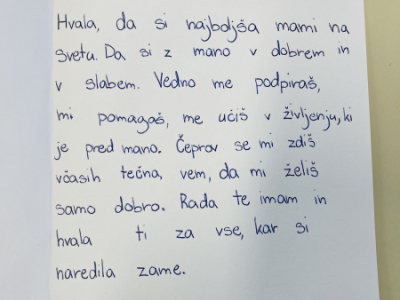 Hvala, da si najboljša mami na
svetu. Da si z mano v dobrem in
v slabem. Vedno me podpiraš,
mi pomagaš, me učiš v življenju, ki
je pred mano. Čeprov se mi zdiš
včasih tečna, vem, da mi želiš
samo dobro. Rada te imam in
hvala ti za vse, kar si
naredila zame.